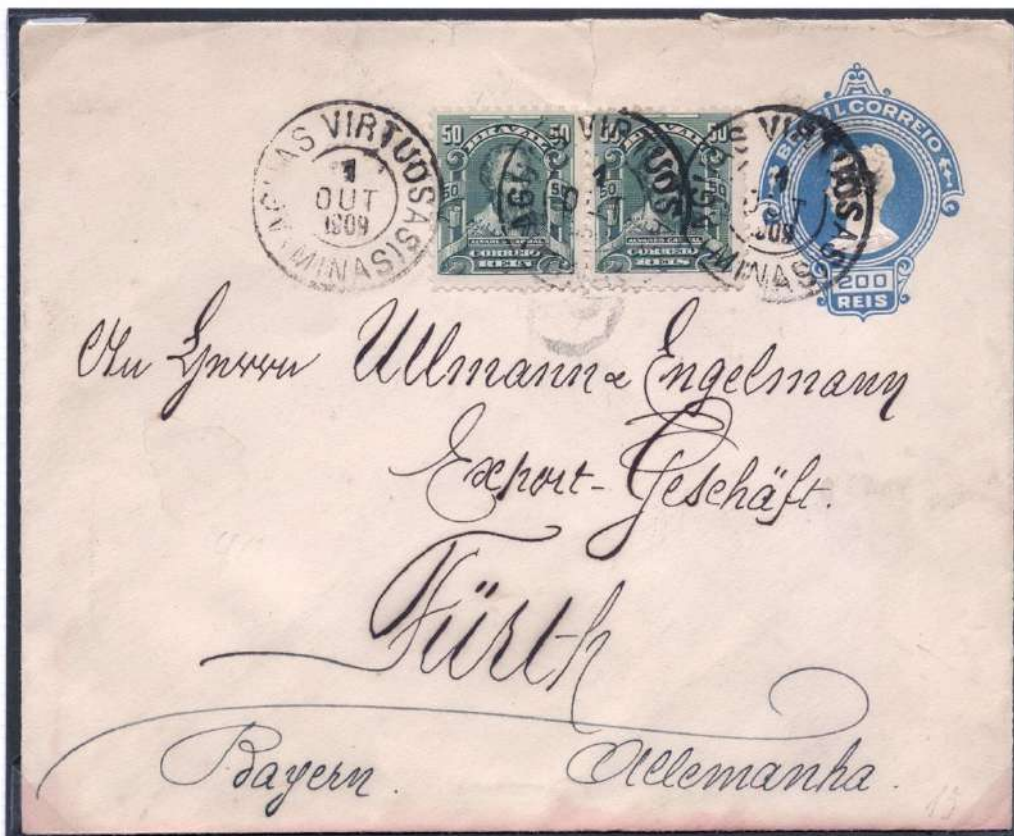 AGUAS VIRTUOSAS
1
OUT
1909
(MINAS)
50 BRAZIL 50
50 50
ALVARES CABRAL
CORREIO
REIS
50 BRAZIL 50
50
ALVARES CABRAL
CORREIO
REIS
VIRTUOSAS
1
AS VIRTUOSAS
1
OUT
1909
MINAS
BRAZIL CORREIO
200
REIS
An Herrn Ullmann & Engelmann
Export-Geschäft.
Fürth
Bayern. Allemanha.